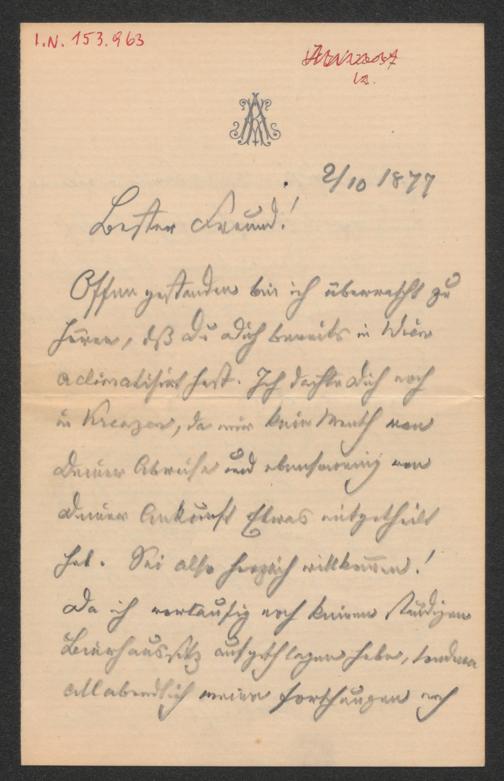 I.N. 153.963
2/10 1877
Bester Freund!
Offen gestanden bin ich überrascht zu
hören, daß Du Dich bereits in Wien
aclimatisirt hast. Ich dachte Dich noch
in, da mir kein Mensch von
Deiner Abreise und ebensowenig von
Deiner Ankunft Etwas mitgetheilt
hat. Sei also herzlich willkommen!
Da ich vorläufig noch keinen ständigen
Bierhaussitz aufgeschlagen habe, sondern
allabendlich meine Forschungen nach